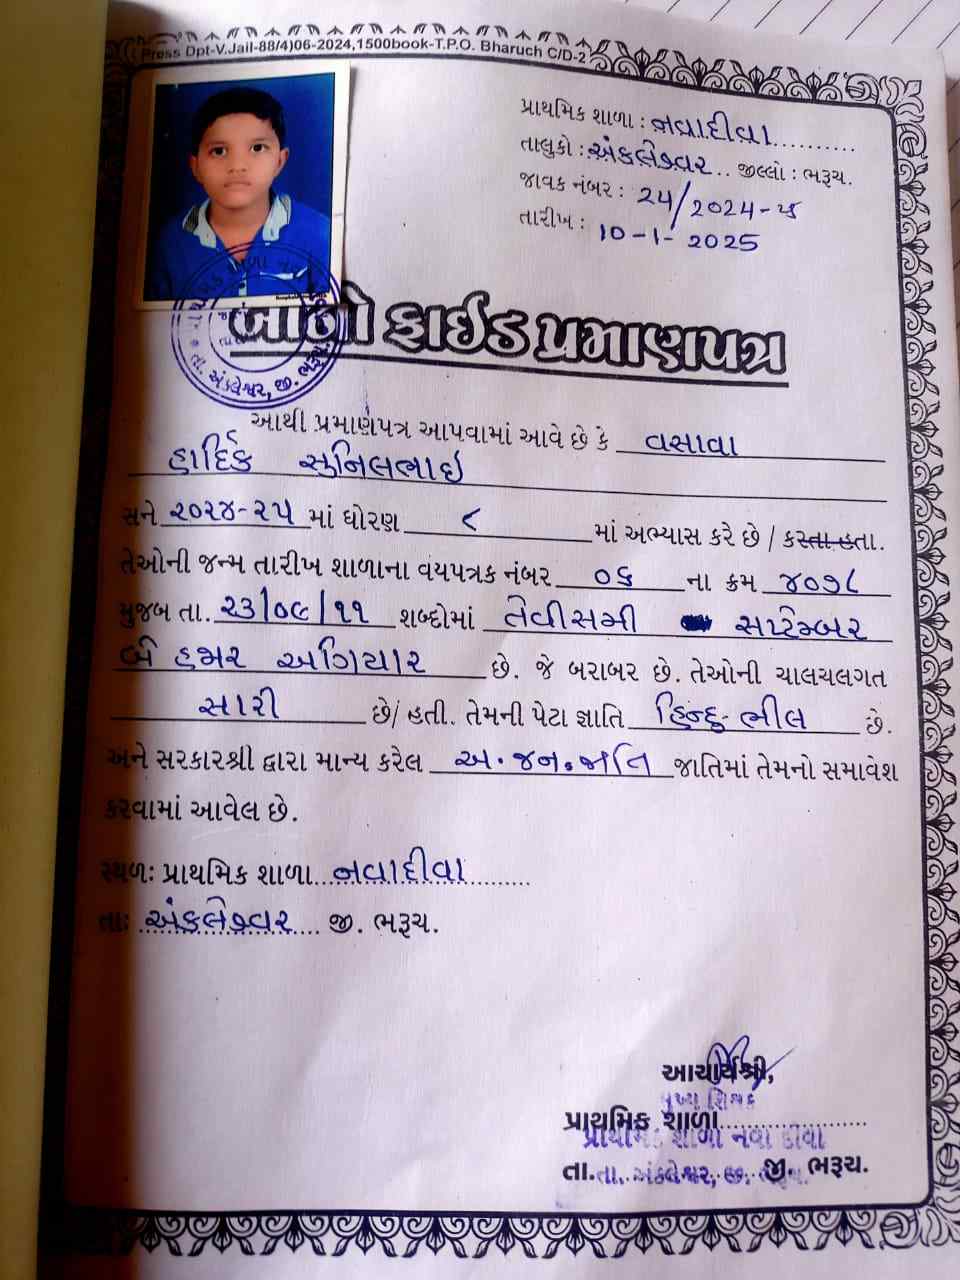 Press Dpt-V.Jail-88/4)06-2024,1500book-T.P.O. Bharuch C/D-2
પ્રાથમિક શાળા : નવાદીવા
તાલુકો : અંકલેશ્વર જીલ્લો : ભરૂચ.
જાવક નંબર : 24/2024-૨૫
તારીખ : 10-1-2025
બોનાફાઈડ પ્રમાણપત્ર
તા. અંકલેશ્વર, જી. ભરૂચ.
આથી પ્રમાણપત્ર આપવામાં આવે છે કે વસાવા
હાર્દિક સુનિલભાઇ
સને ૨૦૨૪-૨૫ માં ધોરણ ૮ માં અભ્યાસ કરે છે / કરતા હતા.
તેઓની જન્મ તારીખ શાળાના વયપત્રક નંબર ૦૬ ના ક્રમ ૪૦૭૮
મુજબ તા. ૨૩/૦૯/૧૧ શબ્દોમાં તેવીસમી સપ્ટેમ્બર
બે હજાર અગિયાર છે. જે બરાબર છે. તેઓની ચાલચલગત
સારી છે/ હતી. તેમની પેટા જ્ઞાતિ હિન્દુ-ભીલ છે.
અને સરકારશ્રી દ્વારા માન્ય કરેલ અ.જન.જાતિ જાતિમાં તેમનો સમાવેશ
કરવામાં આવેલ છે.
સ્થળ: પ્રાથમિક શાળા નવાદીવા
તા: અંકલેશ્વર જી. ભરૂચ.
આચાર્યશ્રી,
મુખ્ય શિક્ષક
પ્રાથમિક શાળા
પ્રાથમિક શાળા નવા દીવા
તા. જી. ભરૂચ.
તા. અંકલેશ્વર,